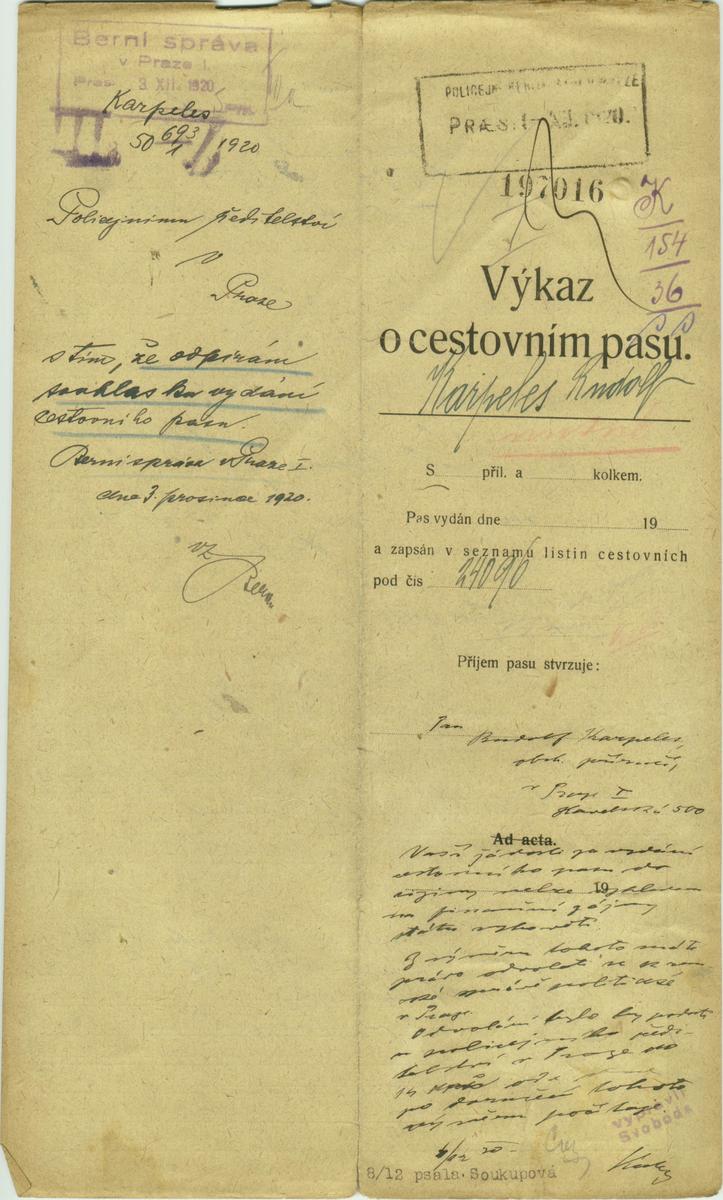 Berní správa
v Praze I.
Praes. 3. XII. 1920
Karpeles
50 693/1 1920
Policejnímu ředitelství
v
Praze
s tím, že odpírám
souhlas ku vydání
cestovního pasu.
Berní správa v Praze I.
dne 3. prosince 1920.
vz
Beran
PRÆS.
197016
K
154
36
Výkaz
o cestovním pasu.
Karpeles Rudolf
S příl. a kolkem.
Pas vydán dne 19
a zapsán v seznamu listin cestovních
pod čís 24090
Příjem pasu stvrzuje:
Pan
Rudolf Karpeles,
obch. příručí,
v Praze I
Havelská 500
Ad acta.
19
Vaší žádosti za vydání
cestovního pasu do
ciziny nelze vzhledem
na finanční zájmy
státu vyhověti.
Z výměru tohoto máte
právo odvolati se k zem
ské správě politické
v Praze.
Odvolání bylo by podati
u policejního ředi-
telství v Praze do
14 dnů ode dne
po doručení tohoto
výměru počítaje.
vypravil
Svoboda
8/12 psala Soukupová